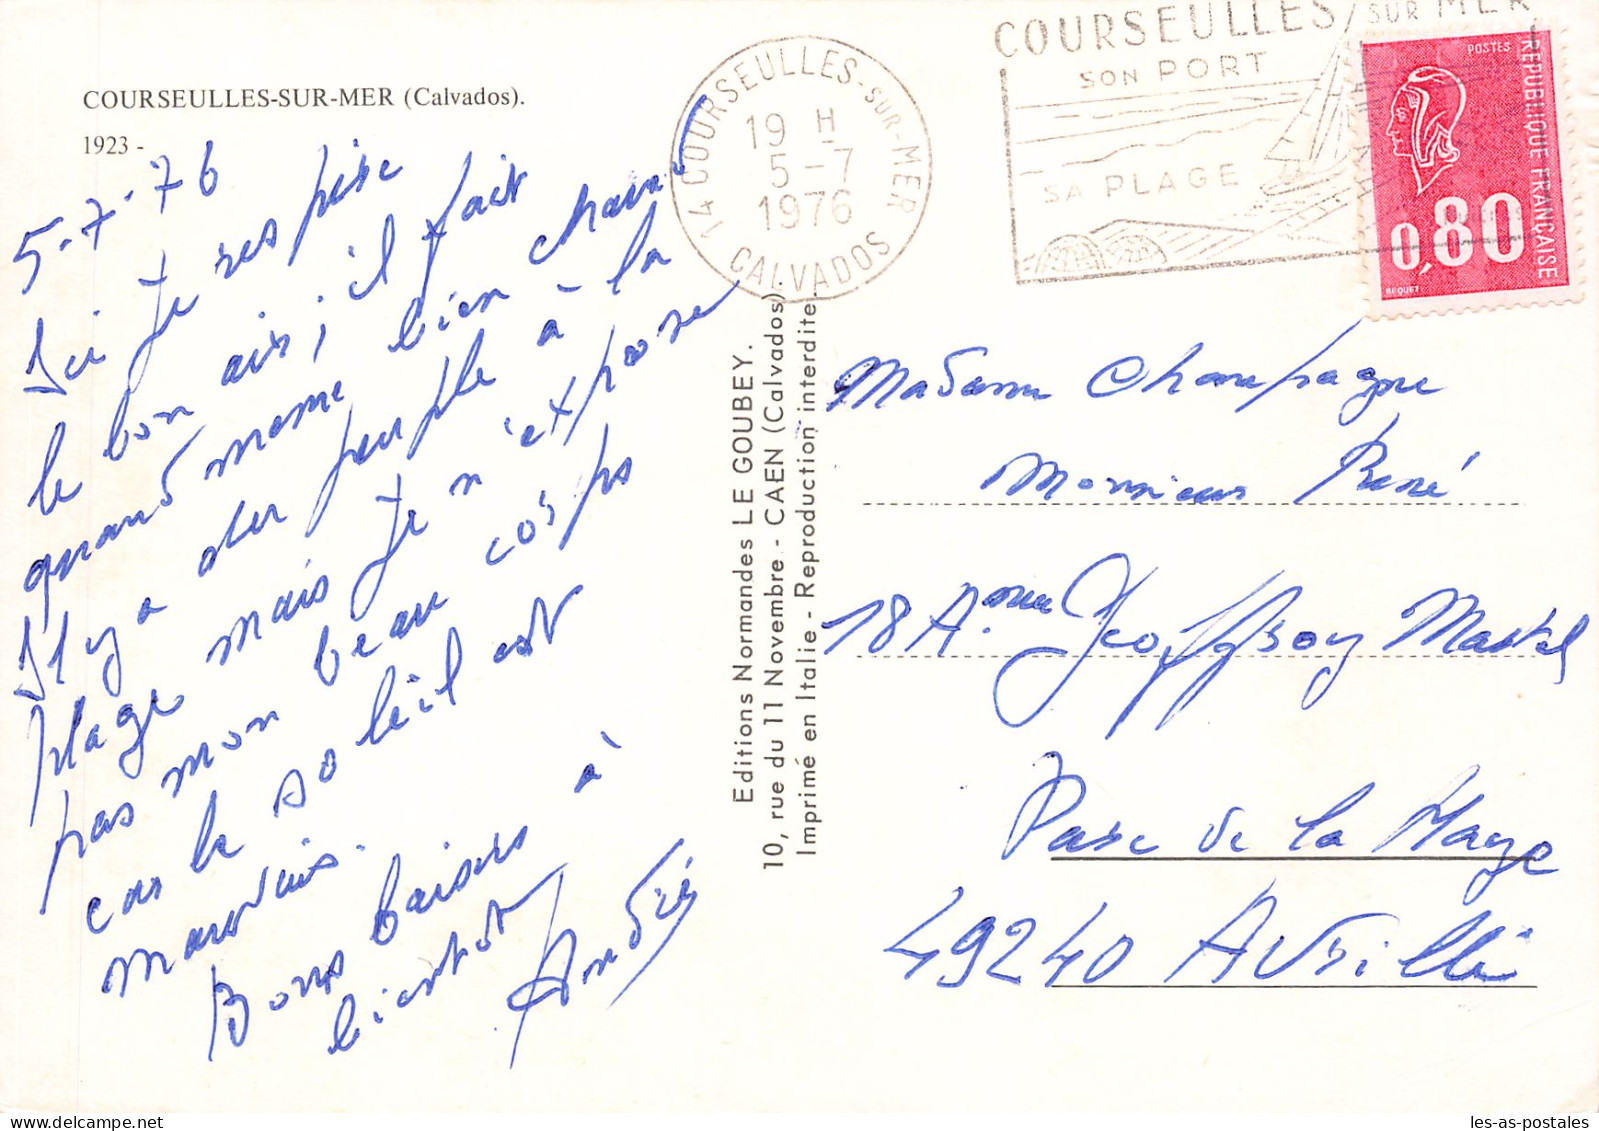 COURSEULLES-SUR-MER (Calvados).
1923 -
5-7-76
Ici je respire
le bon air, il fait
quand meme bien chaud
Il y a du peuple à la
plage mais je n'expose
pas mon beau corps
car le soleil est
maudis.
Bons baisers à
bientot
Andrée
Editions Normandes LE GOUBEY.
10, rue du 11 Novembre - CAEN (Calvados).
Imprimé en Italie - Reproduction interdite
14 COURSEULLES-SUR-MER
19 H
5-7
1976
CALVADOS
COURSEULLES / SUR MER
SON PORT
SA PLAGE
POSTES
REPUBLIQUE FRANÇAISE
0,80
BEQUET
Madame Champagne
Monsieur René
18 A. Geoffroy Martel
Parc de la Haye
49240 Avrillé
les-as-postales